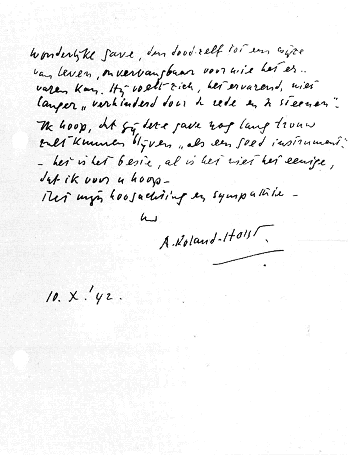 wonderlijke gave, den dood zelf tot een wijze
van leven, onvervangbaar voor wie het er-
varen kan. Hij voelt zich, het ervarend, niet
langer „verhinderd door de rede en de
Ik hoop, dat gij deze gave nog lang trouw
zult kunnen blijven „als een goed instrument"
- het is het beste, al is het niet het eenige,
dat ik voor u hoop -
Met mijn hoogachting en sympathie -
uw
A. Roland-Holst.
10. X.'42.